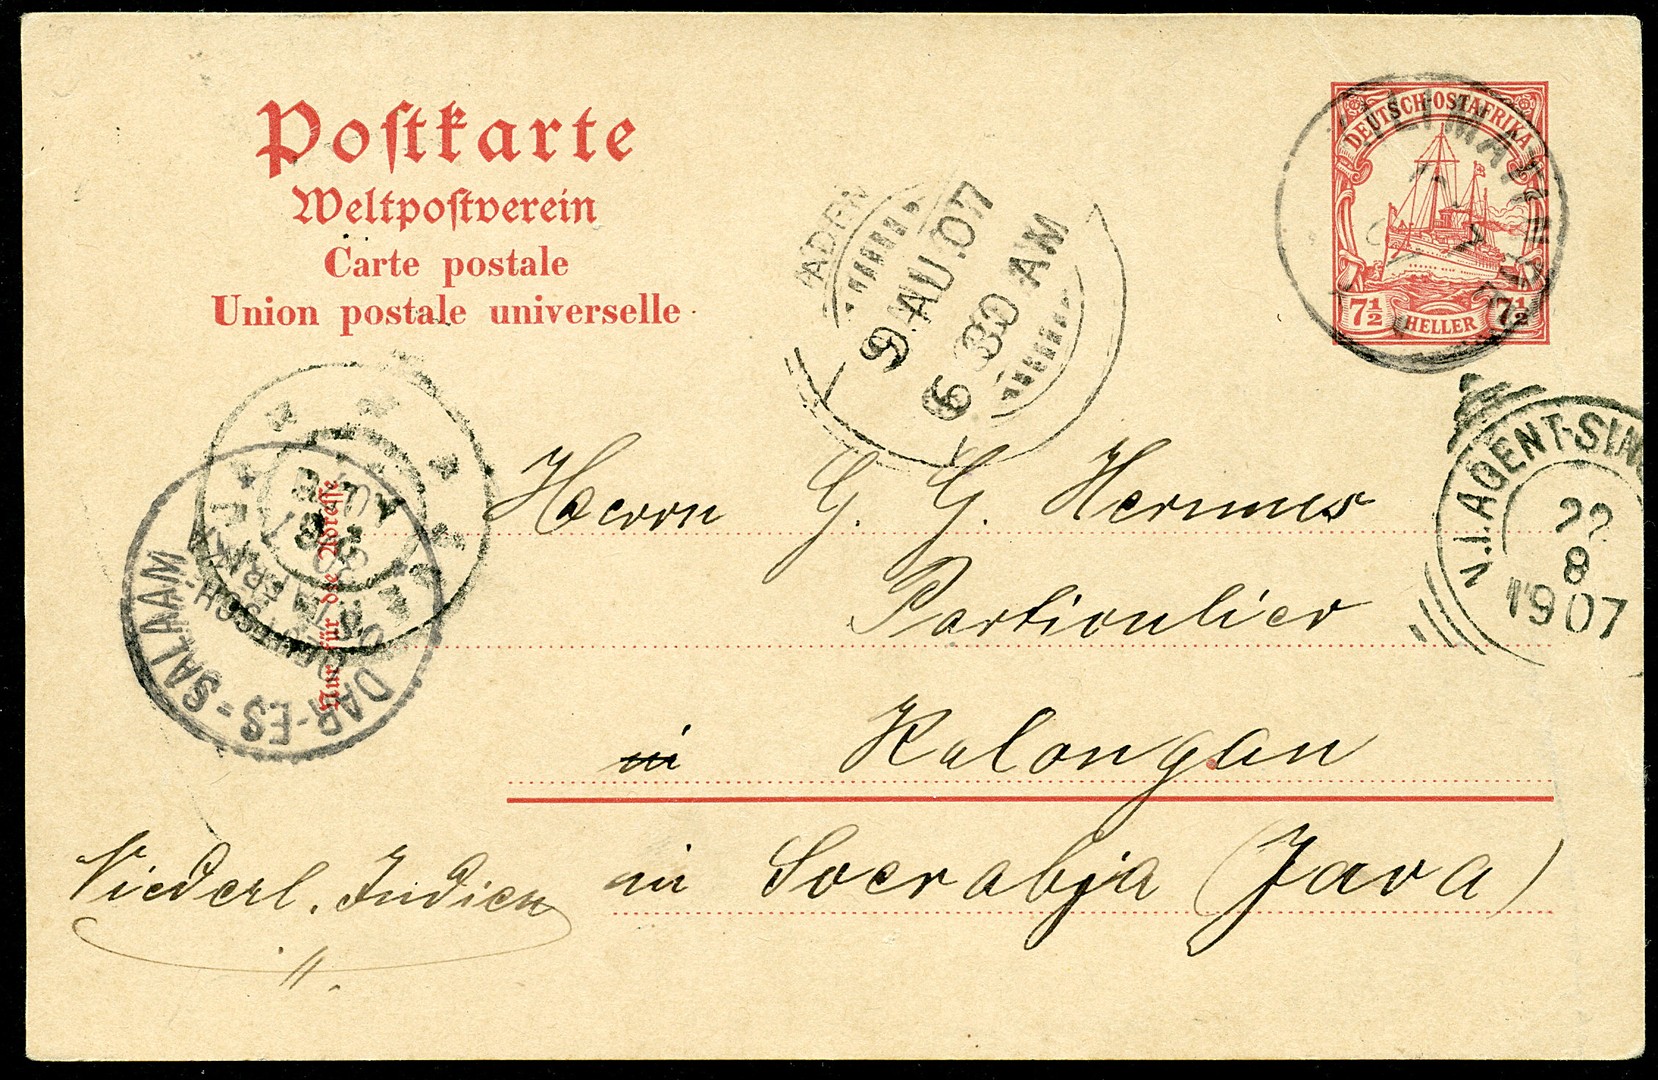 Postkarte
Weltpostverein
Carte postale
Union postale universelle
DEUTSCH-OSTAFRIKA
7½ HELLER 7½
ADEN
9 AU.07
6 30 AM
N.I. AGENT-SING
22
8
1907
DAR-ES-SALAAM
Nur für die Adresse
Herrn G. G. Hermes
Particulier
in Kalongan
in Soerabja (Java)
Niederl. Indien